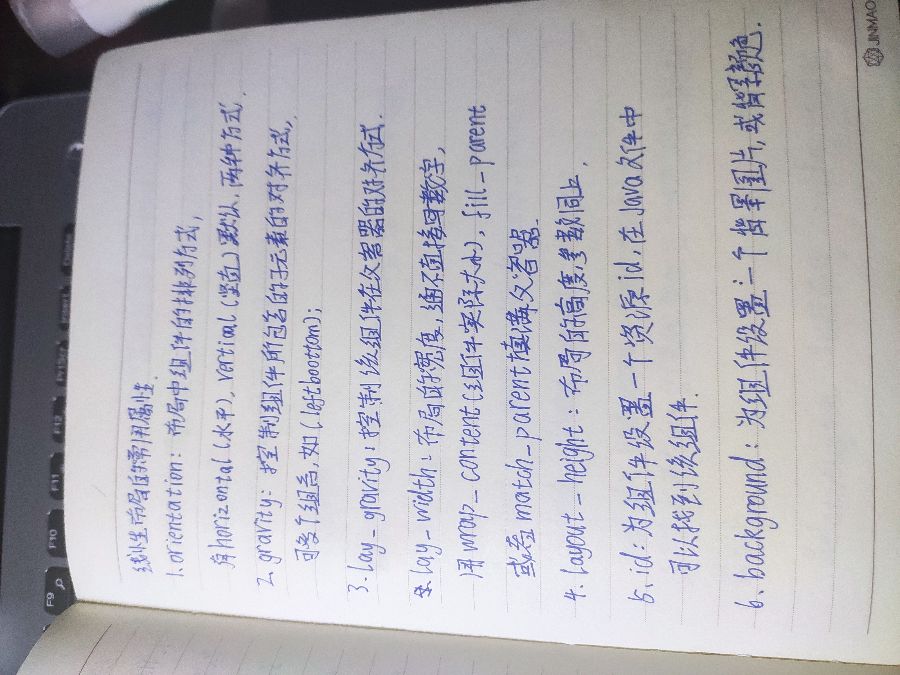 线性布局的常用属性
1.orientation: 布局中组件的排列方式,
有horizontal(水平), vertical(竖直)默认, 两种方式.
2.gravity: 控制组件所包含的子元素的对齐方式,
可多个组合, 如(left|bottom);
3.lay_gravity: 控制该组件在父容器的对齐方式.
lay_width: 布局的宽度, 通不直接写数字,
用wrap_content(组件实际大小), fill_parent
或者match_parent填满父容器.
4.layout_height: 布局的高度,参数同上.
5.id:为组件设置一个资源id, 在Java文件中
可以找到该组件.
6.background: 为组件设置一个背景图片, 或背景颜色.
JINMAO
F9
F10
F11
F12